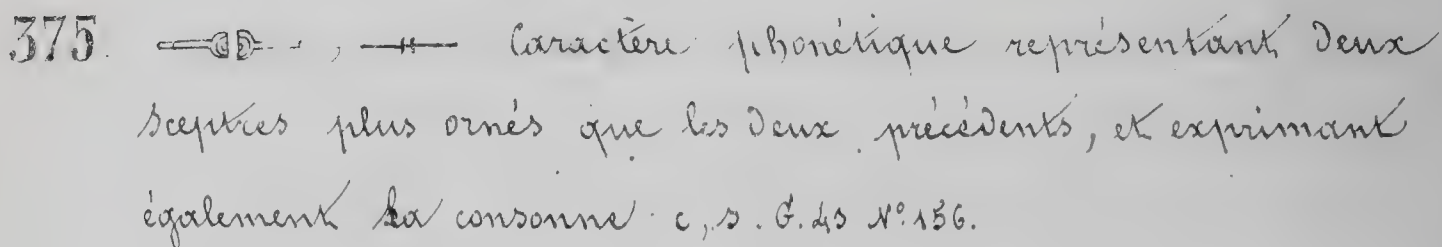 375. , Caractère phonétique représentant deux
sceptres plus ornés que les deux précédents, et exprimant
également la consonne c, s. G. 43 N.° 156.